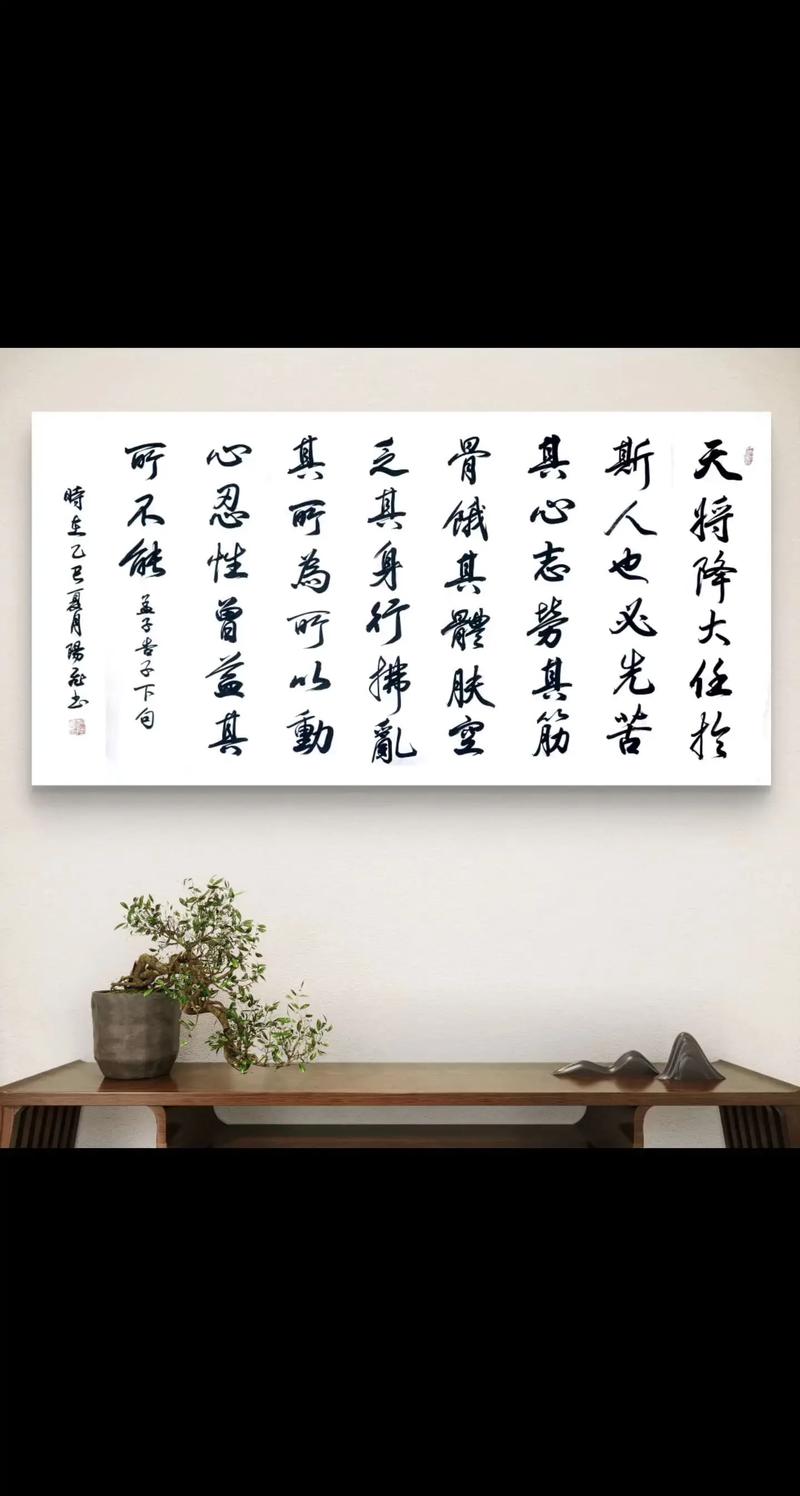 天将降大任於
斯人也必先苦
其心志勞其筋
骨餓其體肤空
乏其身行拂亂
其所為所以動
心忍性曾益其
所不能
孟子告子下句
時在乙巳夏月陽书